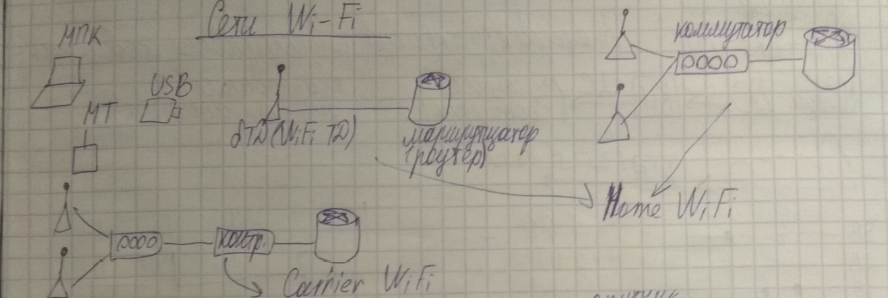 Сети Wi-Fi
МПК
USB
МТ
БТД (WiFi ТД)
маршрутизатор
(роутер)
коммутатор
Home WiFi
контр.
Carrier WiFi